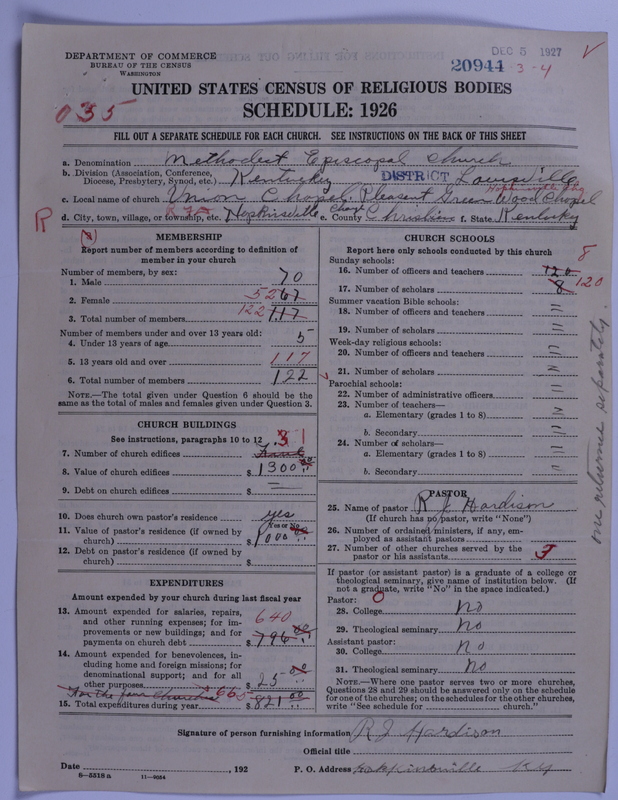 DEPARTMENT OF COMMERCE
BUREAU OF THE CENSUS
WASHINGTON
DEC 5 1927
20944
3-4
UNITED STATES CENSUS OF RELIGIOUS BODIES
035
SCHEDULE: 1926
FILL OUT A SEPARATE SCHEDULE FOR EACH CHURCH. SEE INSTRUCTIONS ON THE BACK OF THIS SHEET
a. Denomination Methodest Episcopal Church
b. Division (Association, Conference, Diocese, Presbytery, Synod, etc.) Kentucky DISTRICT Louisville
c. Local name of church Union Chapel, Pleasant Green Wood Chapel
d. City, town, village, or township, etc. Hopkinsville e. County Christian f. State Kentucky
R
(a)
MEMBERSHIP
Report number of members according to definition of
member in your church
Number of members, by sex:
1. Male 70
2. Female 52 67
3. Total number of members 122 117
Number of members under and over 13 years old:
4. Under 13 years of age 5
5. 13 years old and over 117
6. Total number of members 122
NOTE.—The total given under Question 6 should be the
same as the total of males and females given under Question 3.
CHURCH BUILDINGS
See instructions, paragraphs 10 to 12
7. Number of church edifices 3 1
8. Value of church edifices $ 1300 00
9. Debt on church edifices $ =
10. Does church own pastor's residence yes
(Yes or No)
11. Value of pastor's residence (if owned by
church) $ 1000 00
12. Debt on pastor's residence (if owned by
church) $
EXPENDITURES
Amount expended by your church during last fiscal year
13. Amount expended for salaries, repairs,
and other running expenses; for im-
provements or new buildings; and for
payments on church debt $ 640 796 00
14. Amount expended for benevolences, in-
cluding home and foreign missions; for
denominational support; and for all
other purposes $ 25 00
For the four Churches 665
15. Total expenditures during year $ 821 00
CHURCH SCHOOLS
Report here only schools conducted by this church
Sunday schools:
16. Number of officers and teachers 120 8
17. Number of scholars 8 120
Summer vacation Bible schools:
18. Number of officers and teachers "
19. Number of scholars "
Week-day religious schools:
20. Number of officers and teachers "
21. Number of scholars "
Parochial schools:
22. Number of administrative officers "
23. Number of teachers—
a. Elementary (grades 1 to 8) "
b. Secondary "
24. Number of scholars—
a. Elementary (grades 1 to 8) "
b. Secondary "
PASTOR
25. Name of pastor R J Hardison
(If church has no pastor, write "None")
26. Number of ordained ministers, if any, em-
ployed as assistant pastors
27. Number of other churches served by the
pastor or his assistants 3
If pastor (or assistant pastor) is a graduate of a college or
theological seminary, give name of institution below. (If
not a graduate, write "No" in the space indicated.)
Pastor: 0
28. College No
29. Theological seminary No
Assistant pastor:
30. College No
31. Theological seminary No
NOTE.—Where one pastor serves two or more churches,
Questions 28 and 29 should be answered only on the schedule
for one of the churches; on the schedules for the other churches,
write "See schedule for church."
one returned separately.
Signature of person furnishing information R J Hardison
Official title
Date , 192
P. O. Address Hopkinsville Ky
8-5518a 11-9054